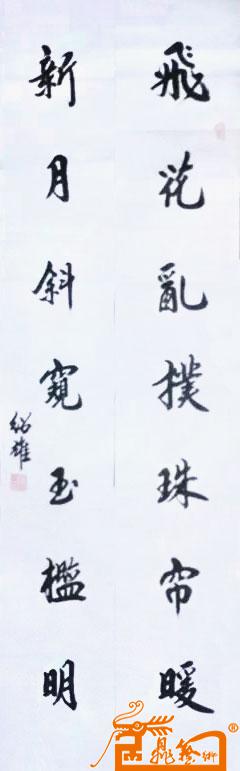 飛花亂撲珠帘暖
新月斜窺玉檻明
紹雄
®